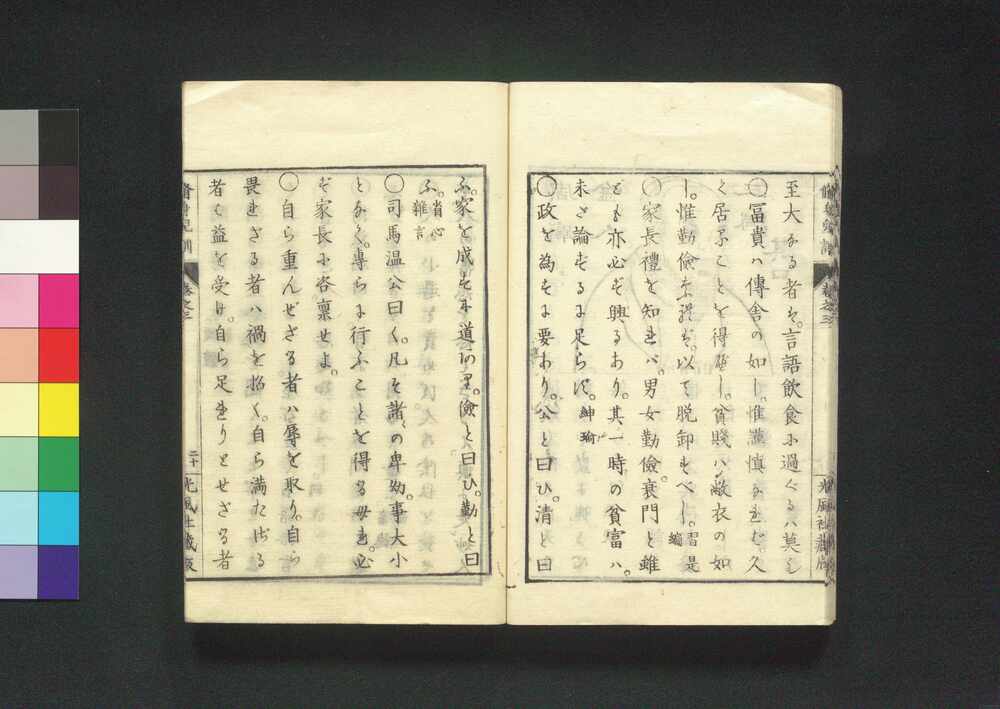 至大なる者そ。言語飲食に過ぐるハ莫し
〇冨貴ハ傳舎の如し。惟謹慎なれば久
く居ふことを得べし。貧賤ハ敝衣の如
し。惟勤儉なれば。以て脱卸すべし。習是編
〇家長禮を知れバ。男女勤儉衰門と雖
ども亦必ず興るあり。其一時の貧富ハ。
未だ論ずるに足らず。紳瑜
〇政を為すに要あり。公と曰ひ。清と曰
ふ。家を成すに道あり。儉と曰ひ。勤と曰
ふ。省心雑言
〇司馬温公曰く。凡そ諸の卑幼。事大小
となく。専らに行ふことを得る毋れ。必
ず家長に咨禀せよ。
〇自ら重んぜざる者ハ辱を取り。自ら
畏れざる者ハ禍を招く。自ら満たざる
者ハ益を受け。自ら足れりとせざる者
巻之三
二十
光風社藏版